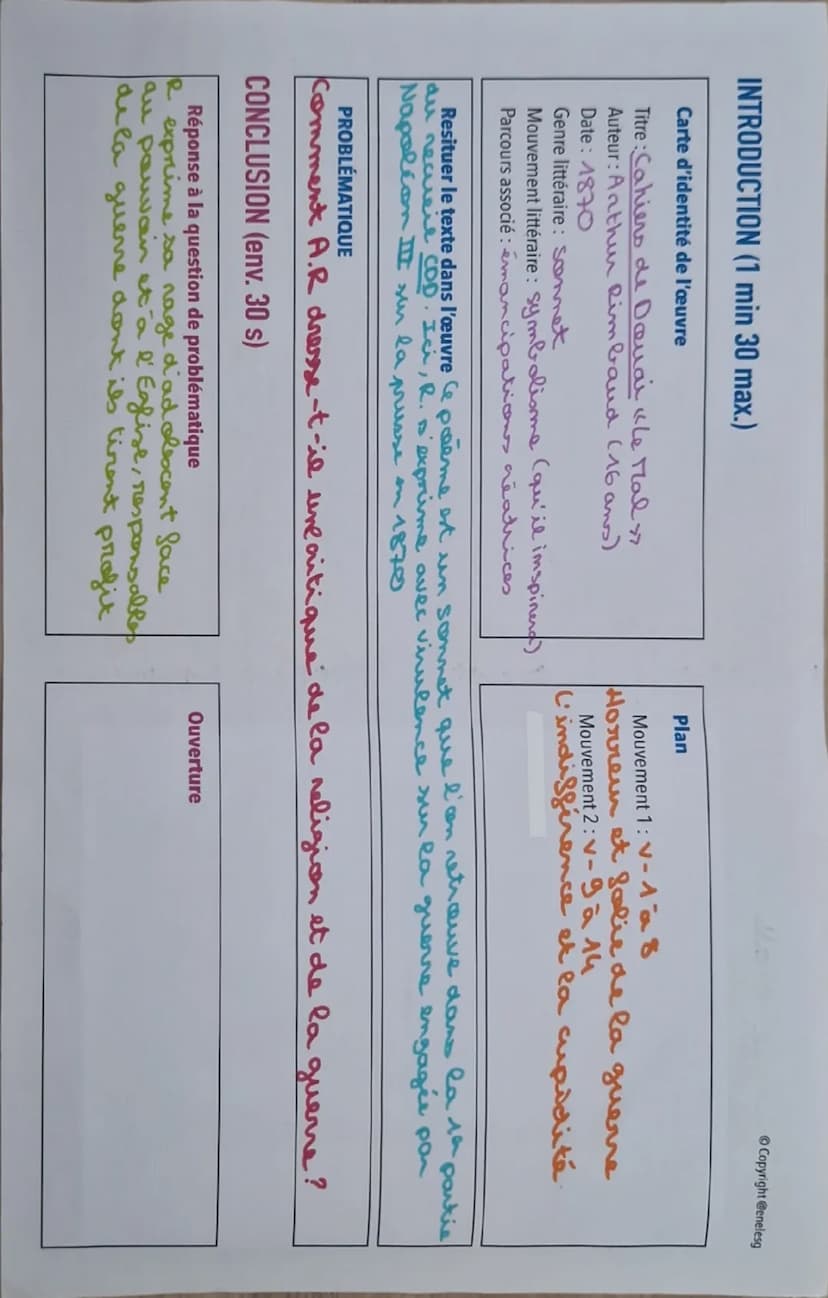 INTRODUCTION (1 min 30 max.)
© Copyright @enelesg
Carte d'identité de l'œuvre
Titre : Cahiers de Douai « Le Mal »
Auteur : Arthur Rimbaud (16 ans)
Date : 1870
Genre littéraire : sonnet
Mouvement littéraire : symbolisme (qu'il inspirera)
Parcours associé : émancipations créatrices
Plan
Mouvement 1 : v-1 à 8
Horreur et folie de la guerre
Mouvement 2 : v-9 à 14
L'indifférence et la cupidité
Resituer le texte dans l'œuvre Ce poème est un sonnet que l'on retrouve dans la 1è partie
du recueil CDD. Ici, R. s'exprime avec virulence sur la guerre engagée par
Napoléon III sur la prusse en 1870
PROBLÉMATIQUE
Comment A.R dresse-t-il une critique de la religion et de la guerre ?
CONCLUSION (env. 30 s)
Réponse à la question de problématique
R exprime sa rage d'adolescent face
au pouvoir et à l'Eglise, responsables
de la guerre dont ils tirent profit
Ouverture